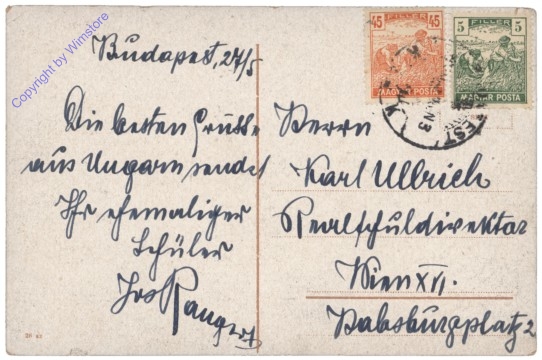 Copyright by Wimstore
Budapest, 24/5
Die besten Grüsse
aus Ungarn sendet
Ihr ehemaliger
Schüler
Jos
45 FILLER 45
MAGYAR POSTA
5 FILLER 5
MAGYAR POSTA
Herrn
Karl Ullrich
Realschuldirektor
Wien XII.